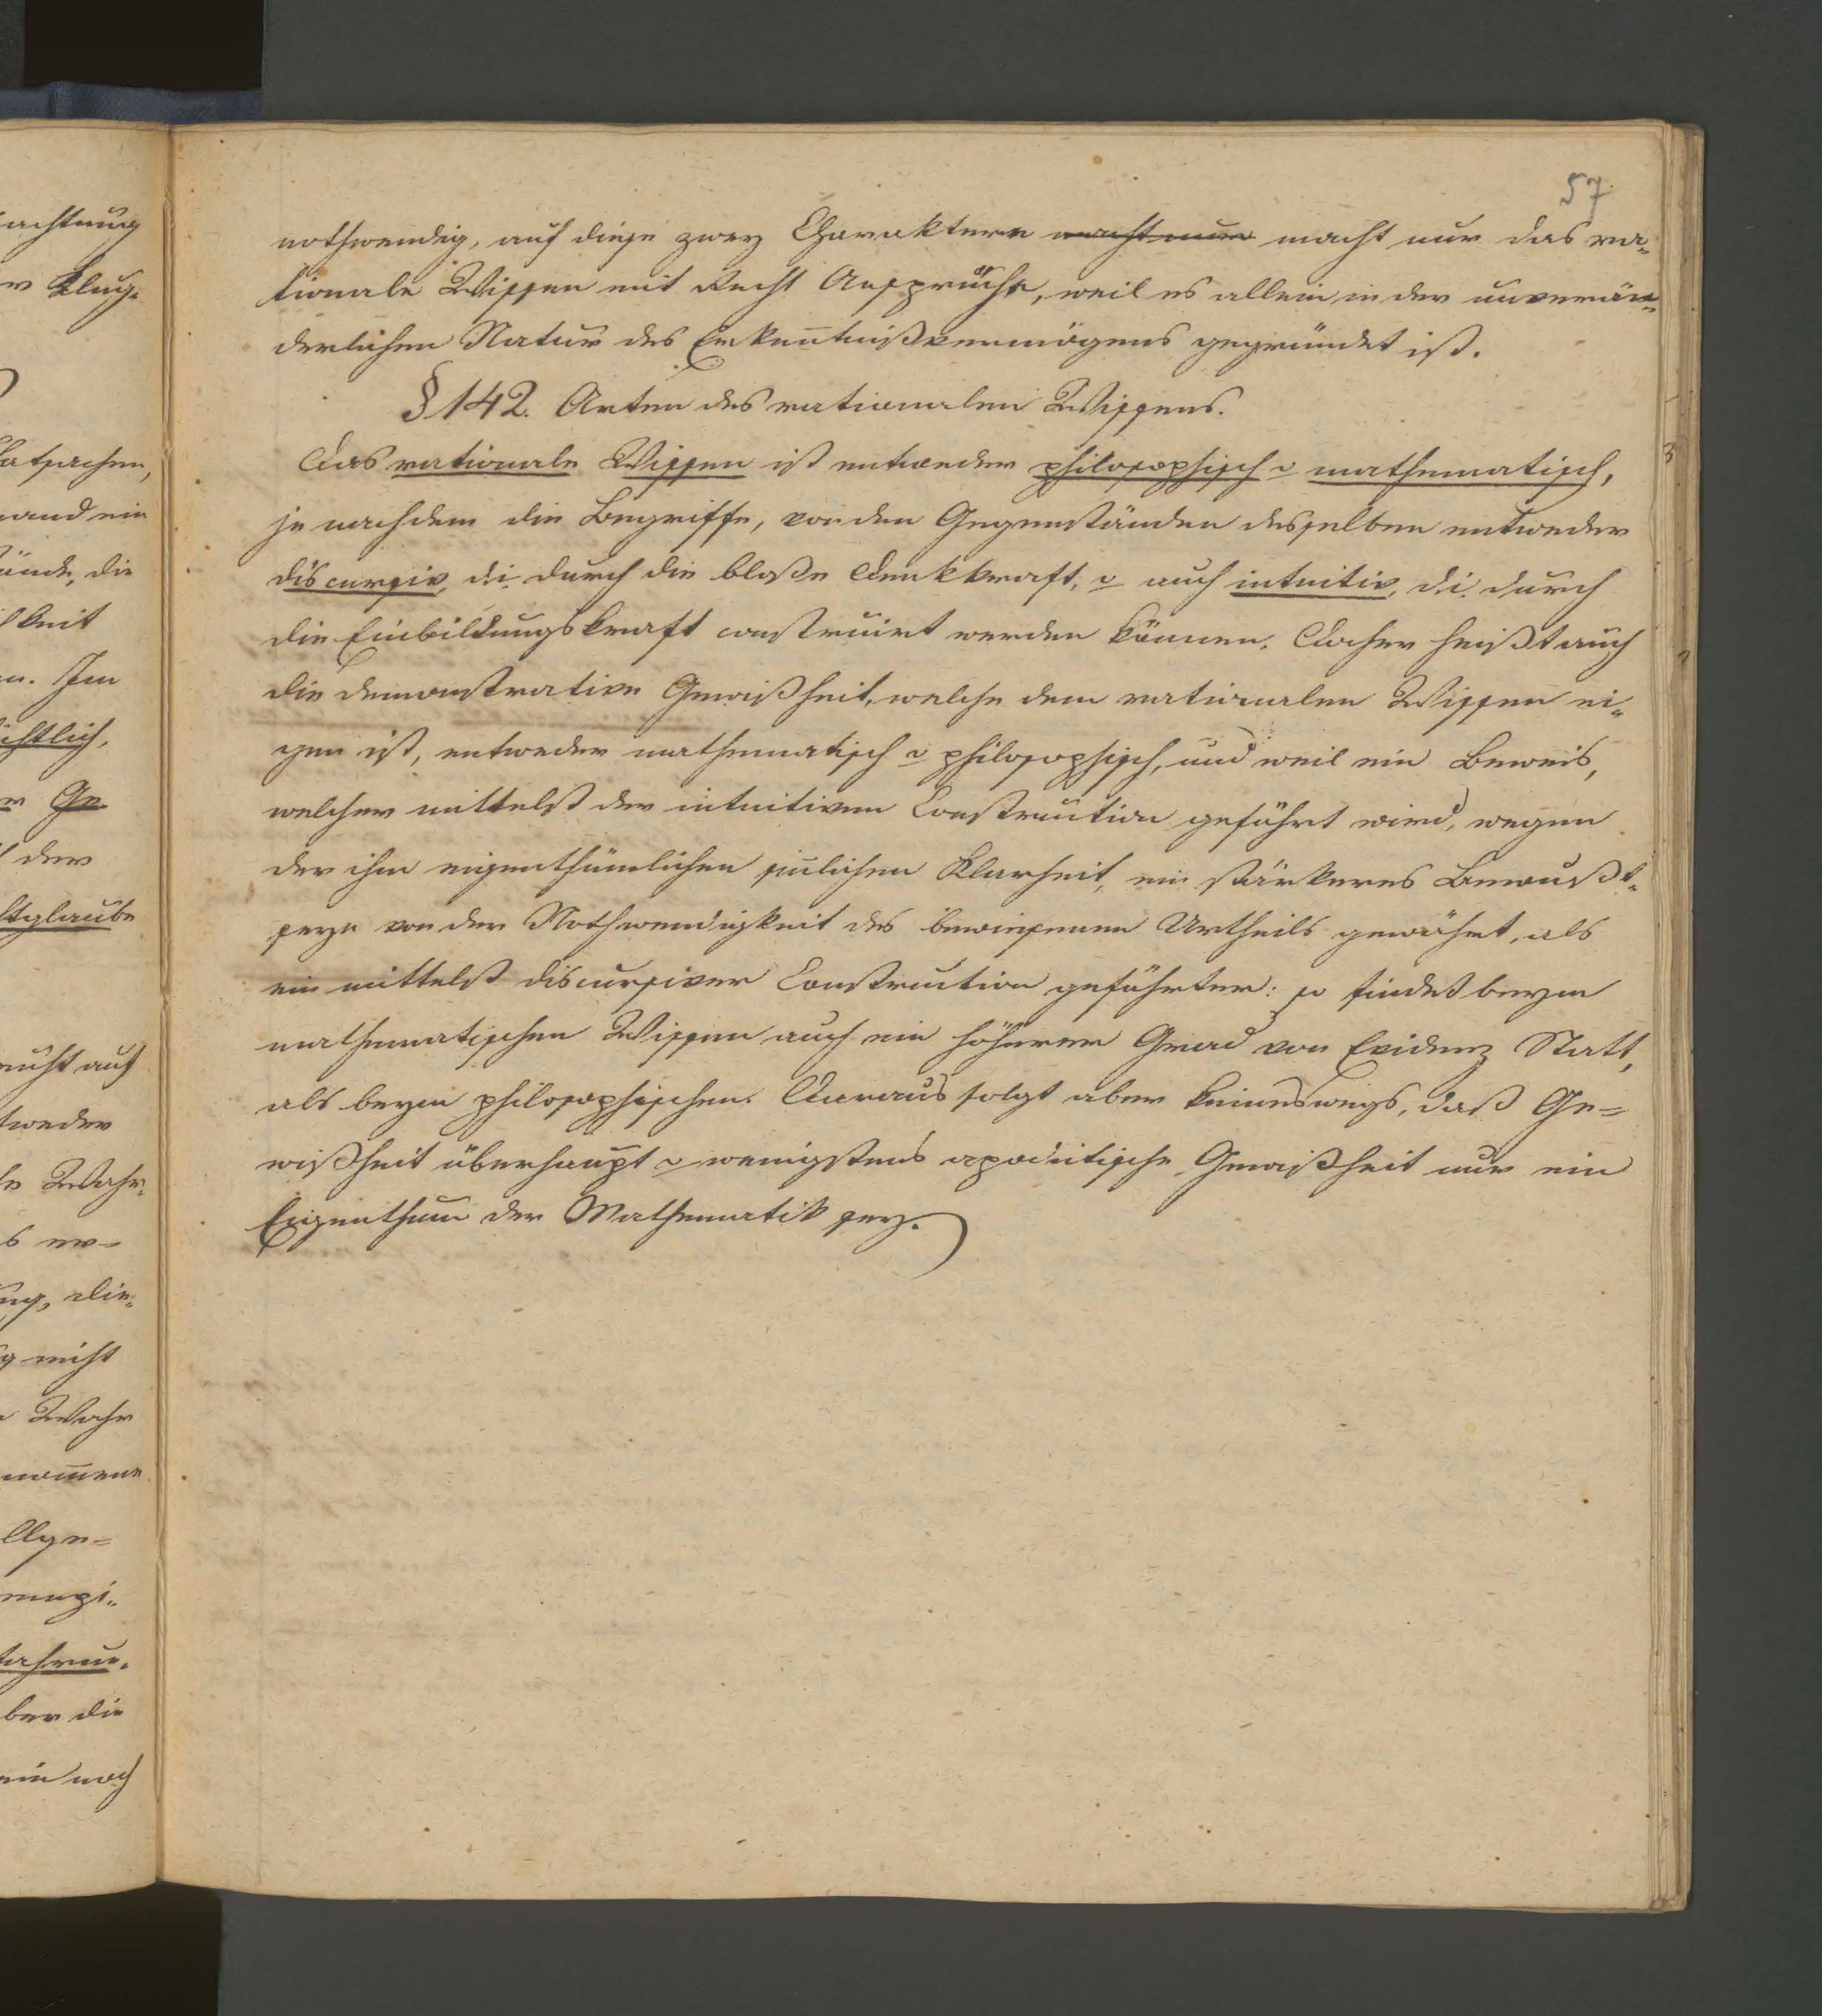 achtung
r Klug-
atsachen,
mand ein
ände, die
keit
n. Im
ichtlich,
r Ge-
der
ltglaube
nicht auf
tweder
le Wahr-
s er-
ng, die-
g nicht
Wahr
nom̄ene
llge-
ahrun-
ber die
ein noch
57.
nothwendig, auf diese zwey Charaktere macht nun macht nur das ra-
tionale Wissen mit Recht Ansprüche, weil es allein in der unverän-
derlichen Natur des Erken̄tnißvermögens gegründet ist.
§ 142. Arten des rationalen Wissens.
Das rationale Wissen ist entweder philosophisch o mathematisch,
je nachdem die Begriffe, von den Gegenständen desselben entweder
discursiv, d.i. durch die bloße Denkkraft, o auch intuitiv, d.i. durch
die Einbildungskraft construirt werden können. Daher heißt auch
die demonstrative Gewißheit, welche dem rationalen Wissen ei-
gen ist, entweder mathematisch o philosophisch, und weil ein Beweis,
welcher mittelst der intuitiven Construction geführt wird, wegen
der ihm eigenthümlichen sin̄lichen Klarheit, ein stärkeres Bewußt-
seyn von der Nothwendigkeit des bewiesenen Urtheils gewährt, als
ein mittelst discursiver Construction geführter: so findet beym
mathematischen Wissen auch ein höherer Grad von Evidenz Statt,
als beym philosophischen. Daraus folgt aber keineswegs, daß Ge-
wißheit überhaupt o wenigstens apodictische Gewißheit nur ein
Eigenthum der Mathematik sey.